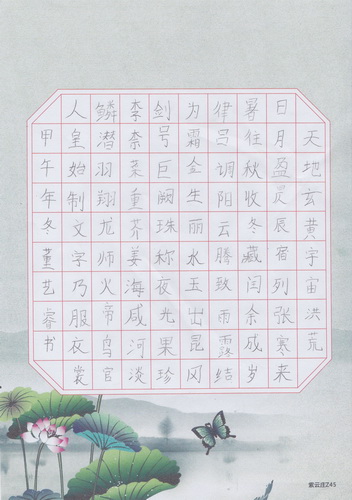 天地玄黄宇宙洪荒
日月盈昃辰宿列张寒来
暑往秋收冬藏闰余成岁
律吕调阳云腾致雨露结
为霜金生丽水玉出昆冈
剑号巨阙珠称夜光果珍
李奈菜重芥姜海咸河淡
鳞潜羽翔龙师火帝鸟官
人皇始制文字乃服衣裳
甲午年冬董艺睿书
紫云庄Z45